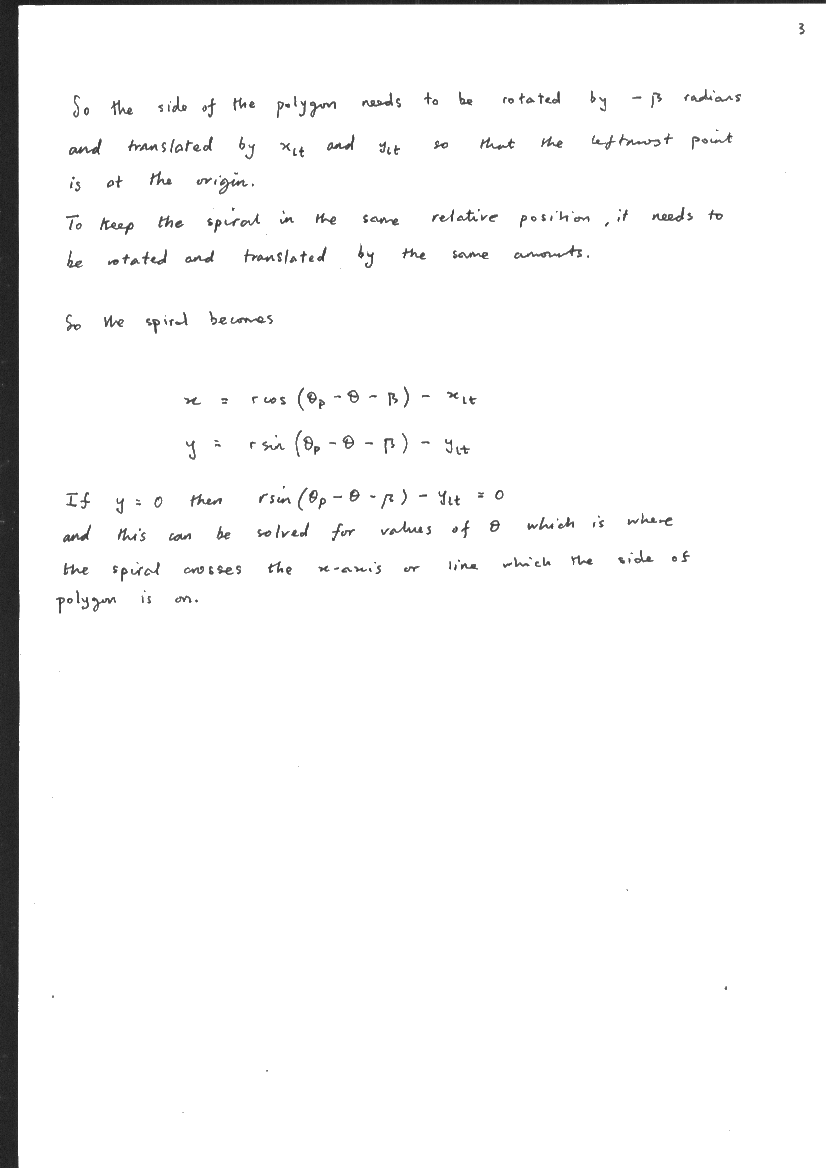 3
So the side of the polygon needs to be rotated by - β radians
and translated by x_lt and y_lt so that the leftmost point
is at the origin.
To keep the spiral in the same relative position, it needs to
be rotated and translated by the same amounts.
So the spiral becomes
x = r cos (θ_p - θ - β) - x_lt
y = r sin (θ_p - θ - β) - y_lt
If y = 0 then r sin (θ_p - θ - β) - y_lt = 0
and this can be solved for values of θ which is where
the spiral crosses the x-axis or line which the side of
polygon is on.